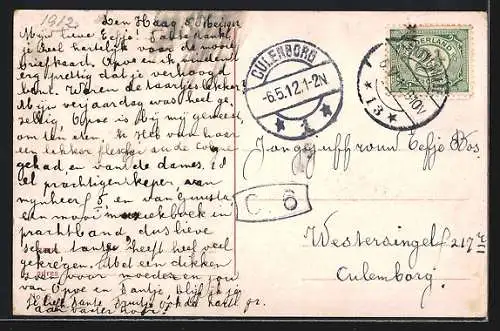 1912
Den Haag 5 Mei 1912
Mijn lieve Eefje! Tante dankt
je heel hartelijk voor de mooie
briefkaart. Opoe en ik vinden
erg prettig dat je verhoogd
bent. Waren de taartjes lekker?
Mijn verjaardag was heel ge-
zellig Opoe is bij mij geweest,
om thee en. Ik heb van haar
een lekker fleschje eau de cologne
gehad en van de dames
prachtigen keper, van
mijnheer en van Gunsta
een mooi muziekboek in
prachtband, dus lieve
schat tante heeft heel veel
gekregen. Met een dikken
zoen voor moeder en jou
van Opoe en Tantje, blijf ik je
je lieve tante
aan vader hoor!
CULENBORG
-6.5.12.1-2N
1
NEDERLAND
13
C 6
Jongejuffrouw Eefje Bos
Westersingel 217
Culemborg.